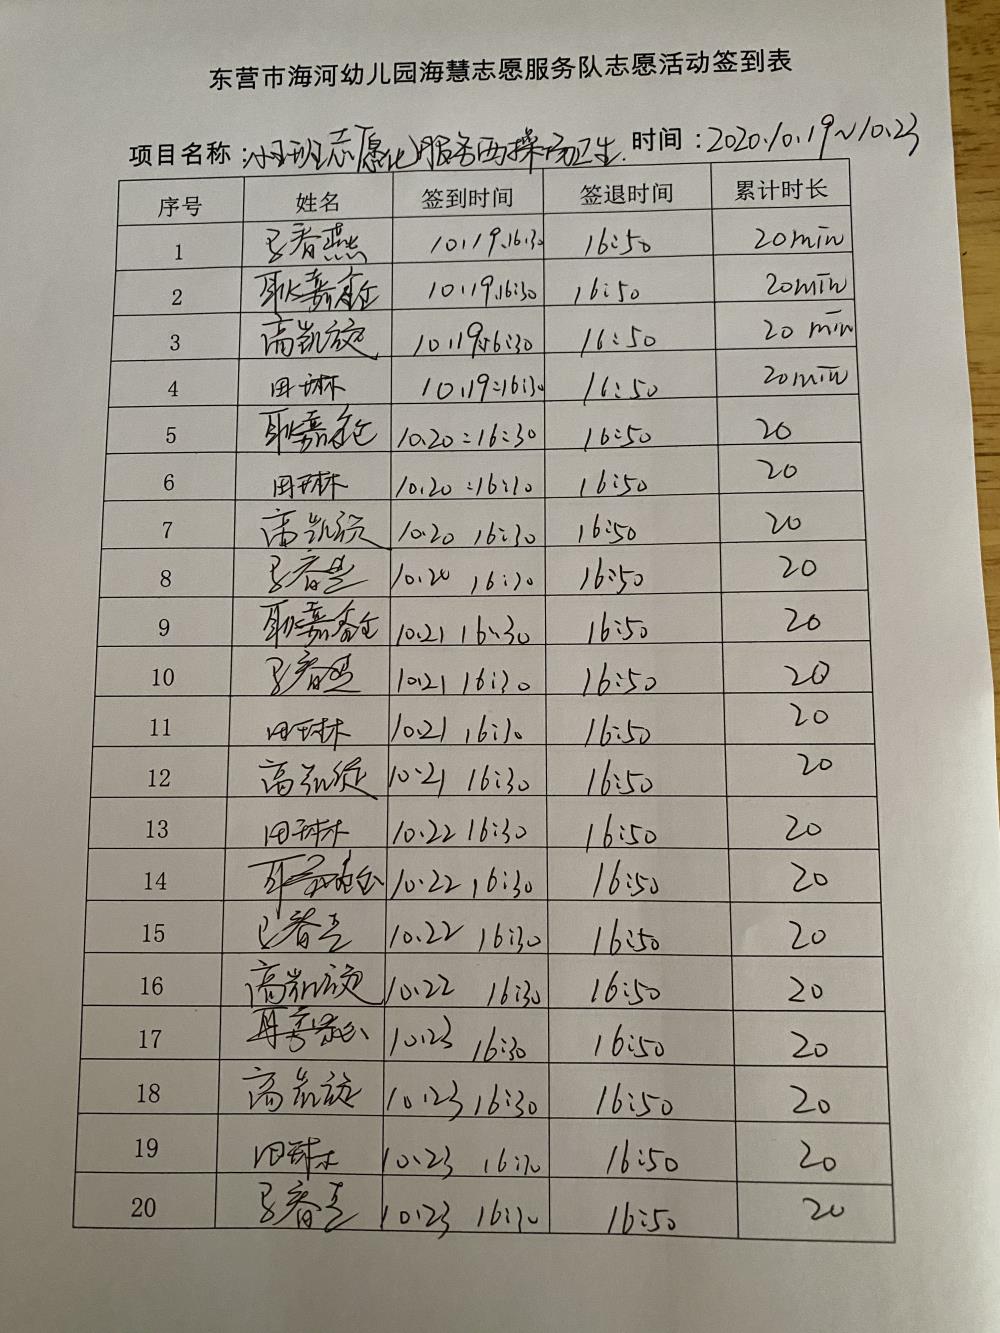 东营市海河幼儿园海慧志愿服务队志愿活动签到表
项目名称：小班志愿 服务西操场卫生. 时间：2020.10.19~10.23
序号 姓名 签到时间 签退时间 累计时长
1 王春燕 10.19.16:30 16:50 20min
2 耿嘉 10.19.16:30 16:50 20min
3 高凯旋 10.19.16:30 16:50 20min
4 田琳 10.19:16:30 16:50 20min
5 耿嘉 10.20:16:30 16:50 20
6 田琳 10.20:16:30 16:50 20
7 高凯旋 10.20 16:30 16:50 20
8 王春燕 10.20 16:30 16:50 20
9 耿嘉 10.21 16:30 16:50 20
10 王春燕 10.21 16:30 16:50 20
11 田琳 10.21 16:30 16:50 20
12 高凯旋 10.21 16:30 16:50 20
13 田琳 10.22 16:30 16:50 20
14 10.22 16:30 16:50 20
15 王春燕 10.22 16:30 16:50 20
16 高凯旋 10.22 16:30 16:50 20
17 10.23 16:30 16:50 20
18 高凯旋 10.23 16:30 16:50 20
19 田琳 10.23 16:30 16:50 20
20 王春燕 10.23 16:30 16:50 20